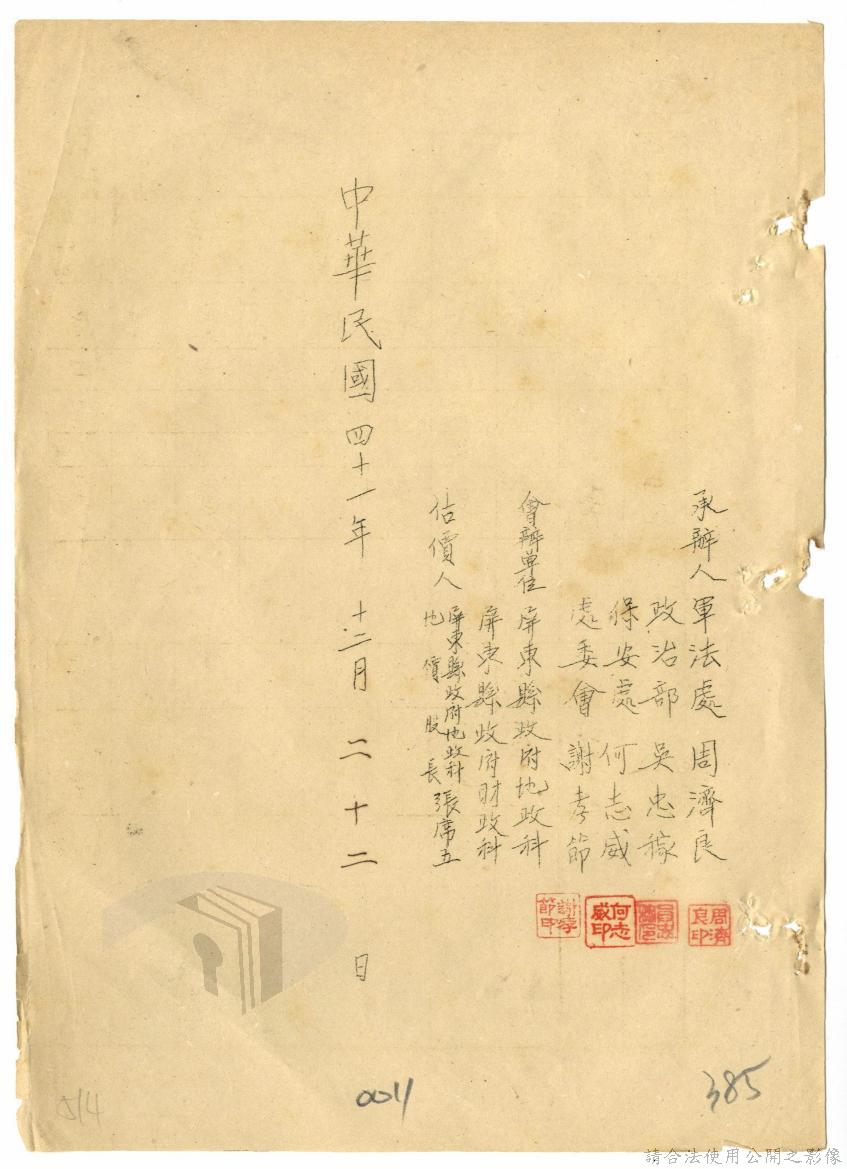 承辦人軍法處 周濟良
政治部 吳忠稼
保安處 何志威
處委會 謝孝節
會辦單位 屏東縣政府地政科
屏東縣政府財政科
估價人 屏東縣政府地政科
地價股長 張席五
中華民國四十一年 十二月 二十二 日
周濟良印
何志威印
謝孝節印
514
0011
385
請合法使用公開之影像